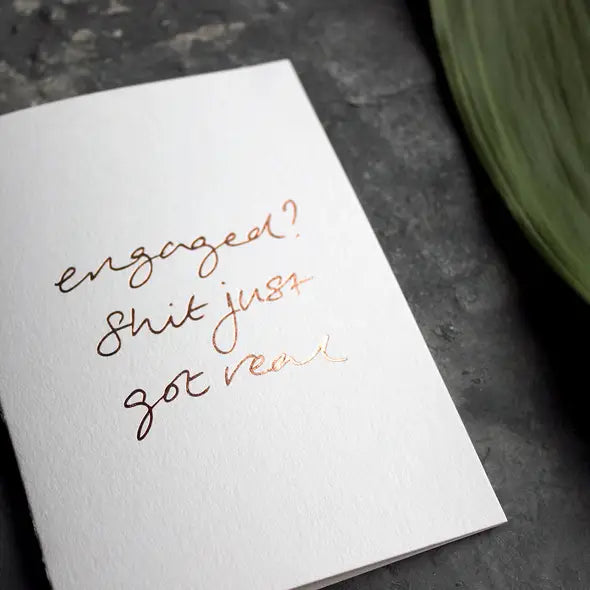 engaged?
shit just
got real